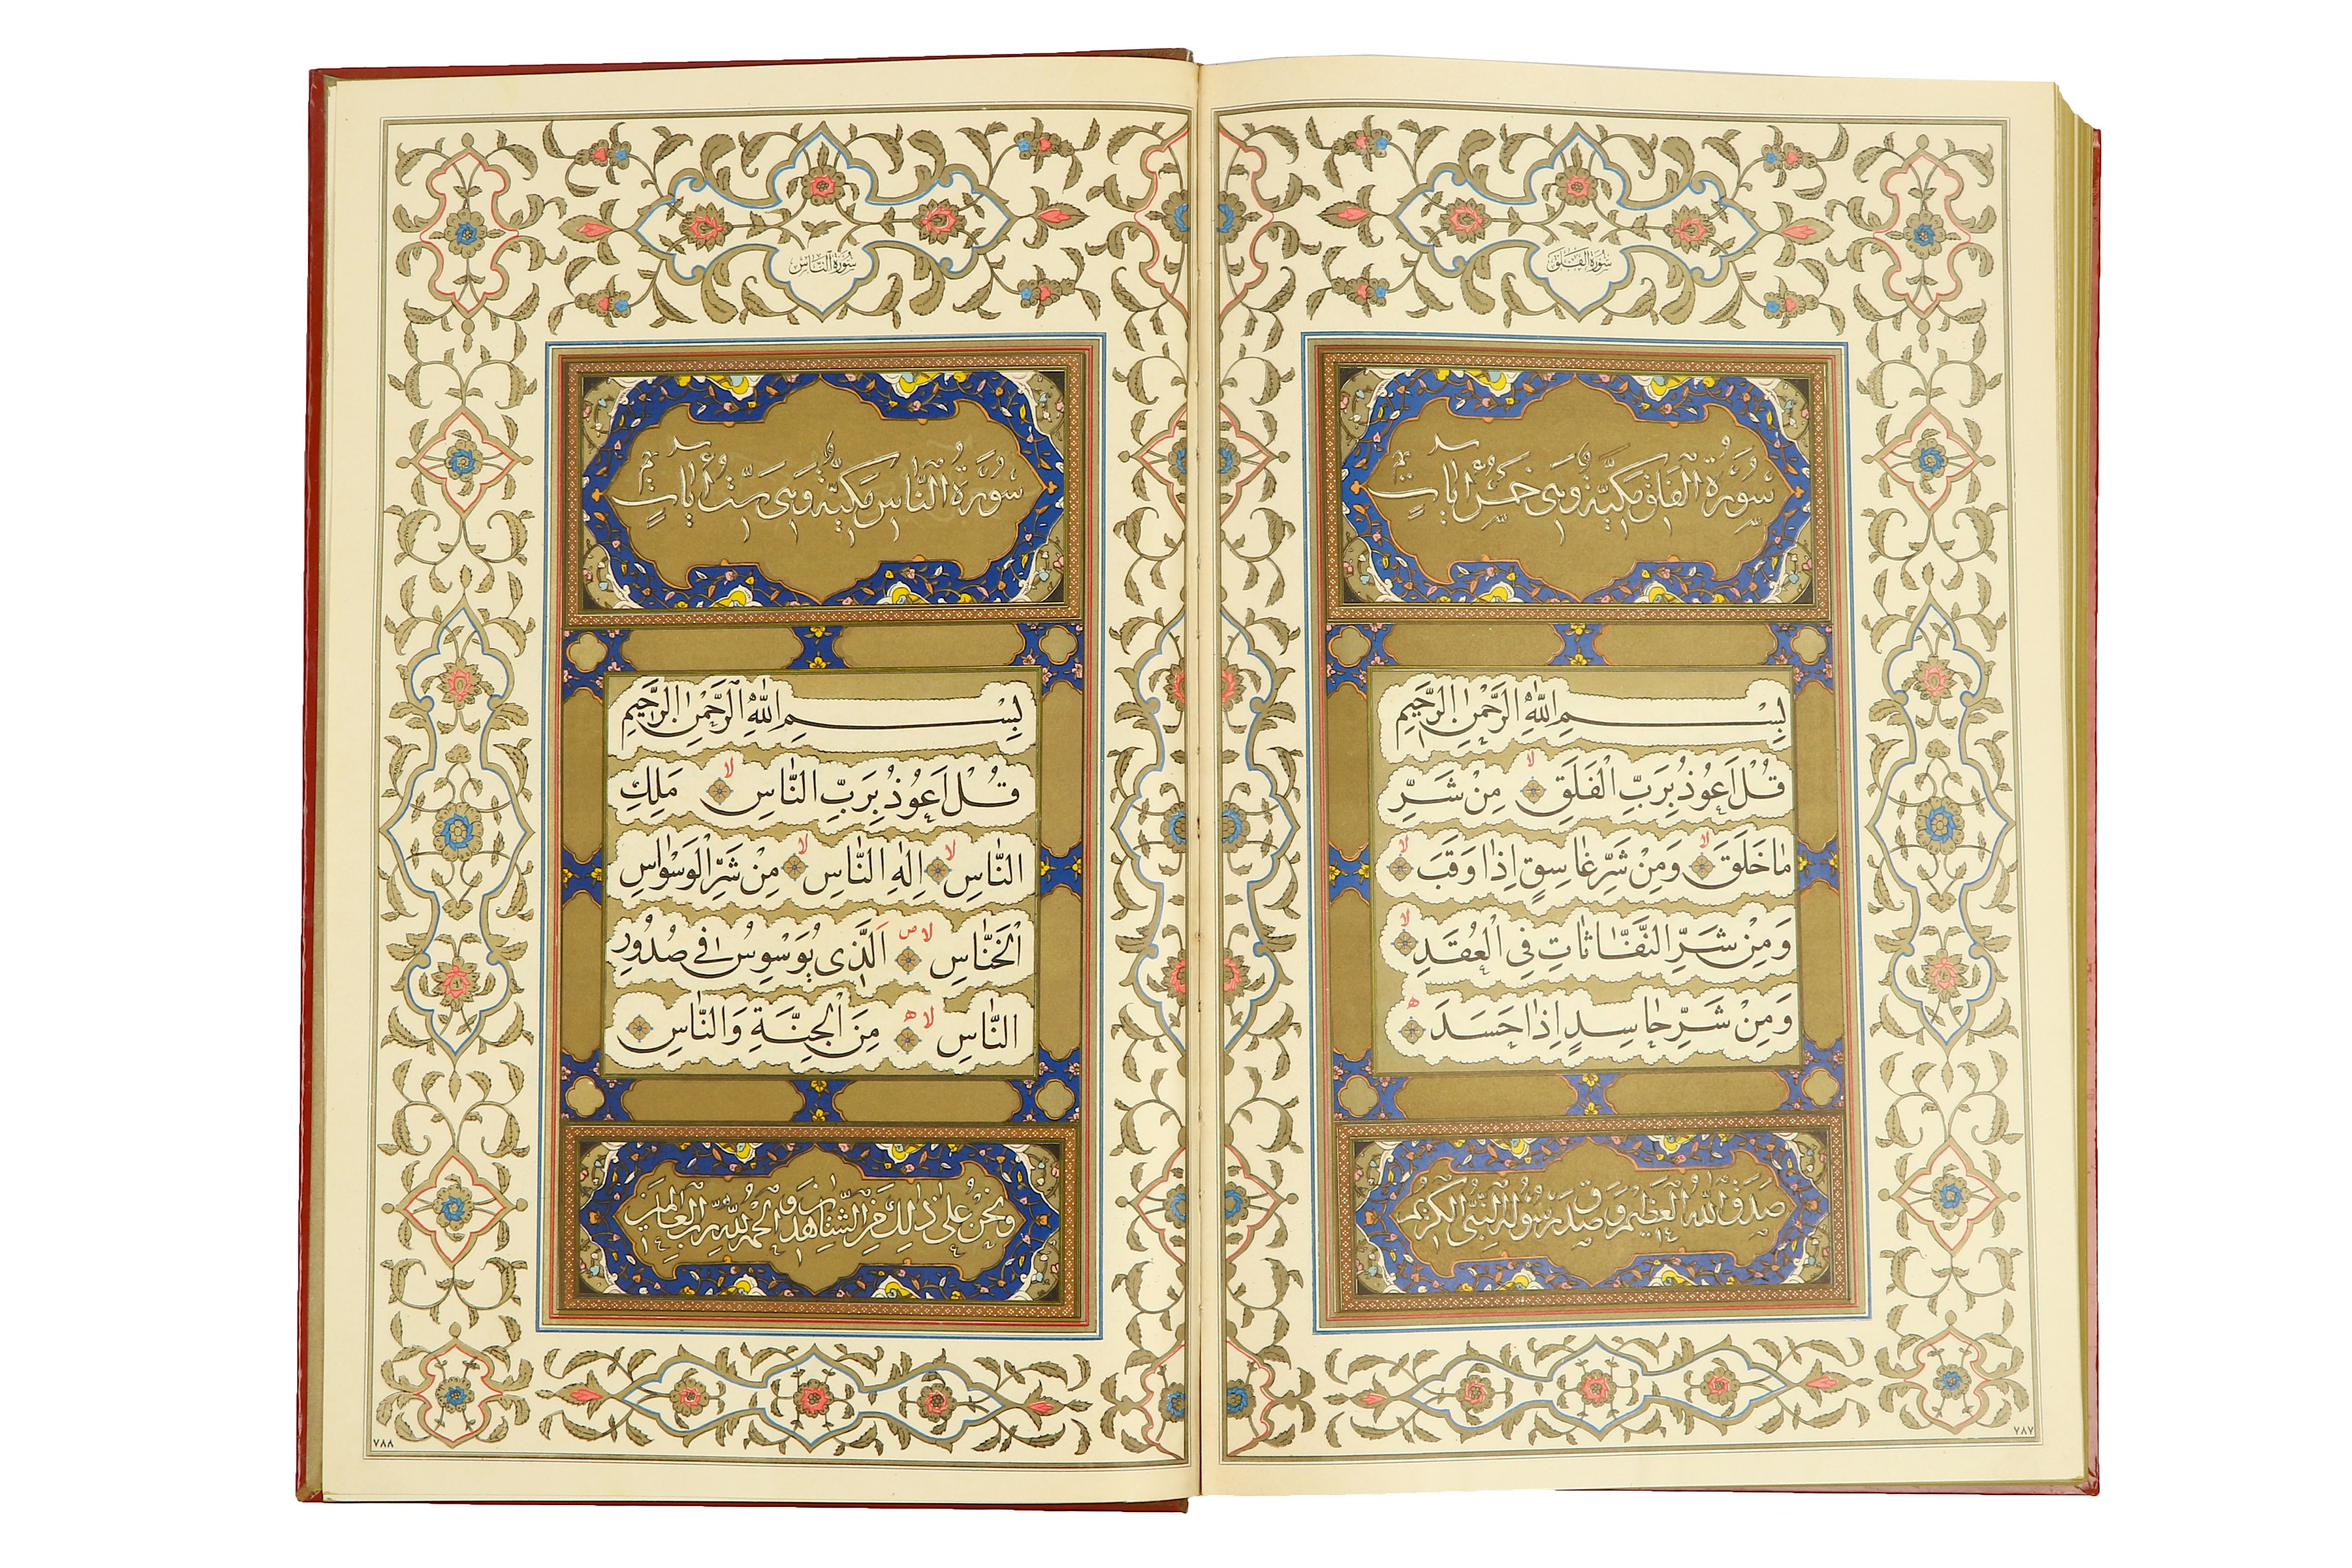 سورة الفلق
سُورَةُ الفلق مَكيّة وَهي خمس اٰيات
بِسْمِ اللّٰهِ الرَّحْمٰنِ الرَّحِيمِ
قُلْ اَعُوذُ بِرَبِّ الْفَلَقِ ۙ مِنْ شَرِّ
مَا خَلَقَ ۙ وَمِنْ شَرِّ غَاسِقٍ اِذَا وَقَبَ ۙ
وَمِنْ شَرِّ النَّفَّاثَاتِ فِي الْعُقَدِ ۙ
وَمِنْ شَرِّ حَاسِدٍ اِذَا حَسَدَ
صَدَقَ اللّٰه العَظيم وَصَدَقَ رَسُوله النَّبيّ الكَريم
٧٨٧
سورة الناس
سُورَةُ النَّاس مَكيّة وَهي ستّ اٰيات
بِسْمِ اللّٰهِ الرَّحْمٰنِ الرَّحِيمِ
قُلْ اَعُوذُ بِرَبِّ النَّاسِ ۙ مَلِكِ
النَّاسِ ۙ اِلٰهِ النَّاسِ ۙ مِنْ شَرِّ الْوَسْوَاسِ
الْخَنَّاسِ ۙ اَلَّذِى يُوَسْوِسُ فِى صُدُورِ
النَّاسِ ۙ مِنَ الْجِنَّةِ وَالنَّاسِ
وَنحن عَلى ذلِكَ مِنَ الشّاهِدين وَالحمد للّٰه ربّ العَالمين
٧٨٨